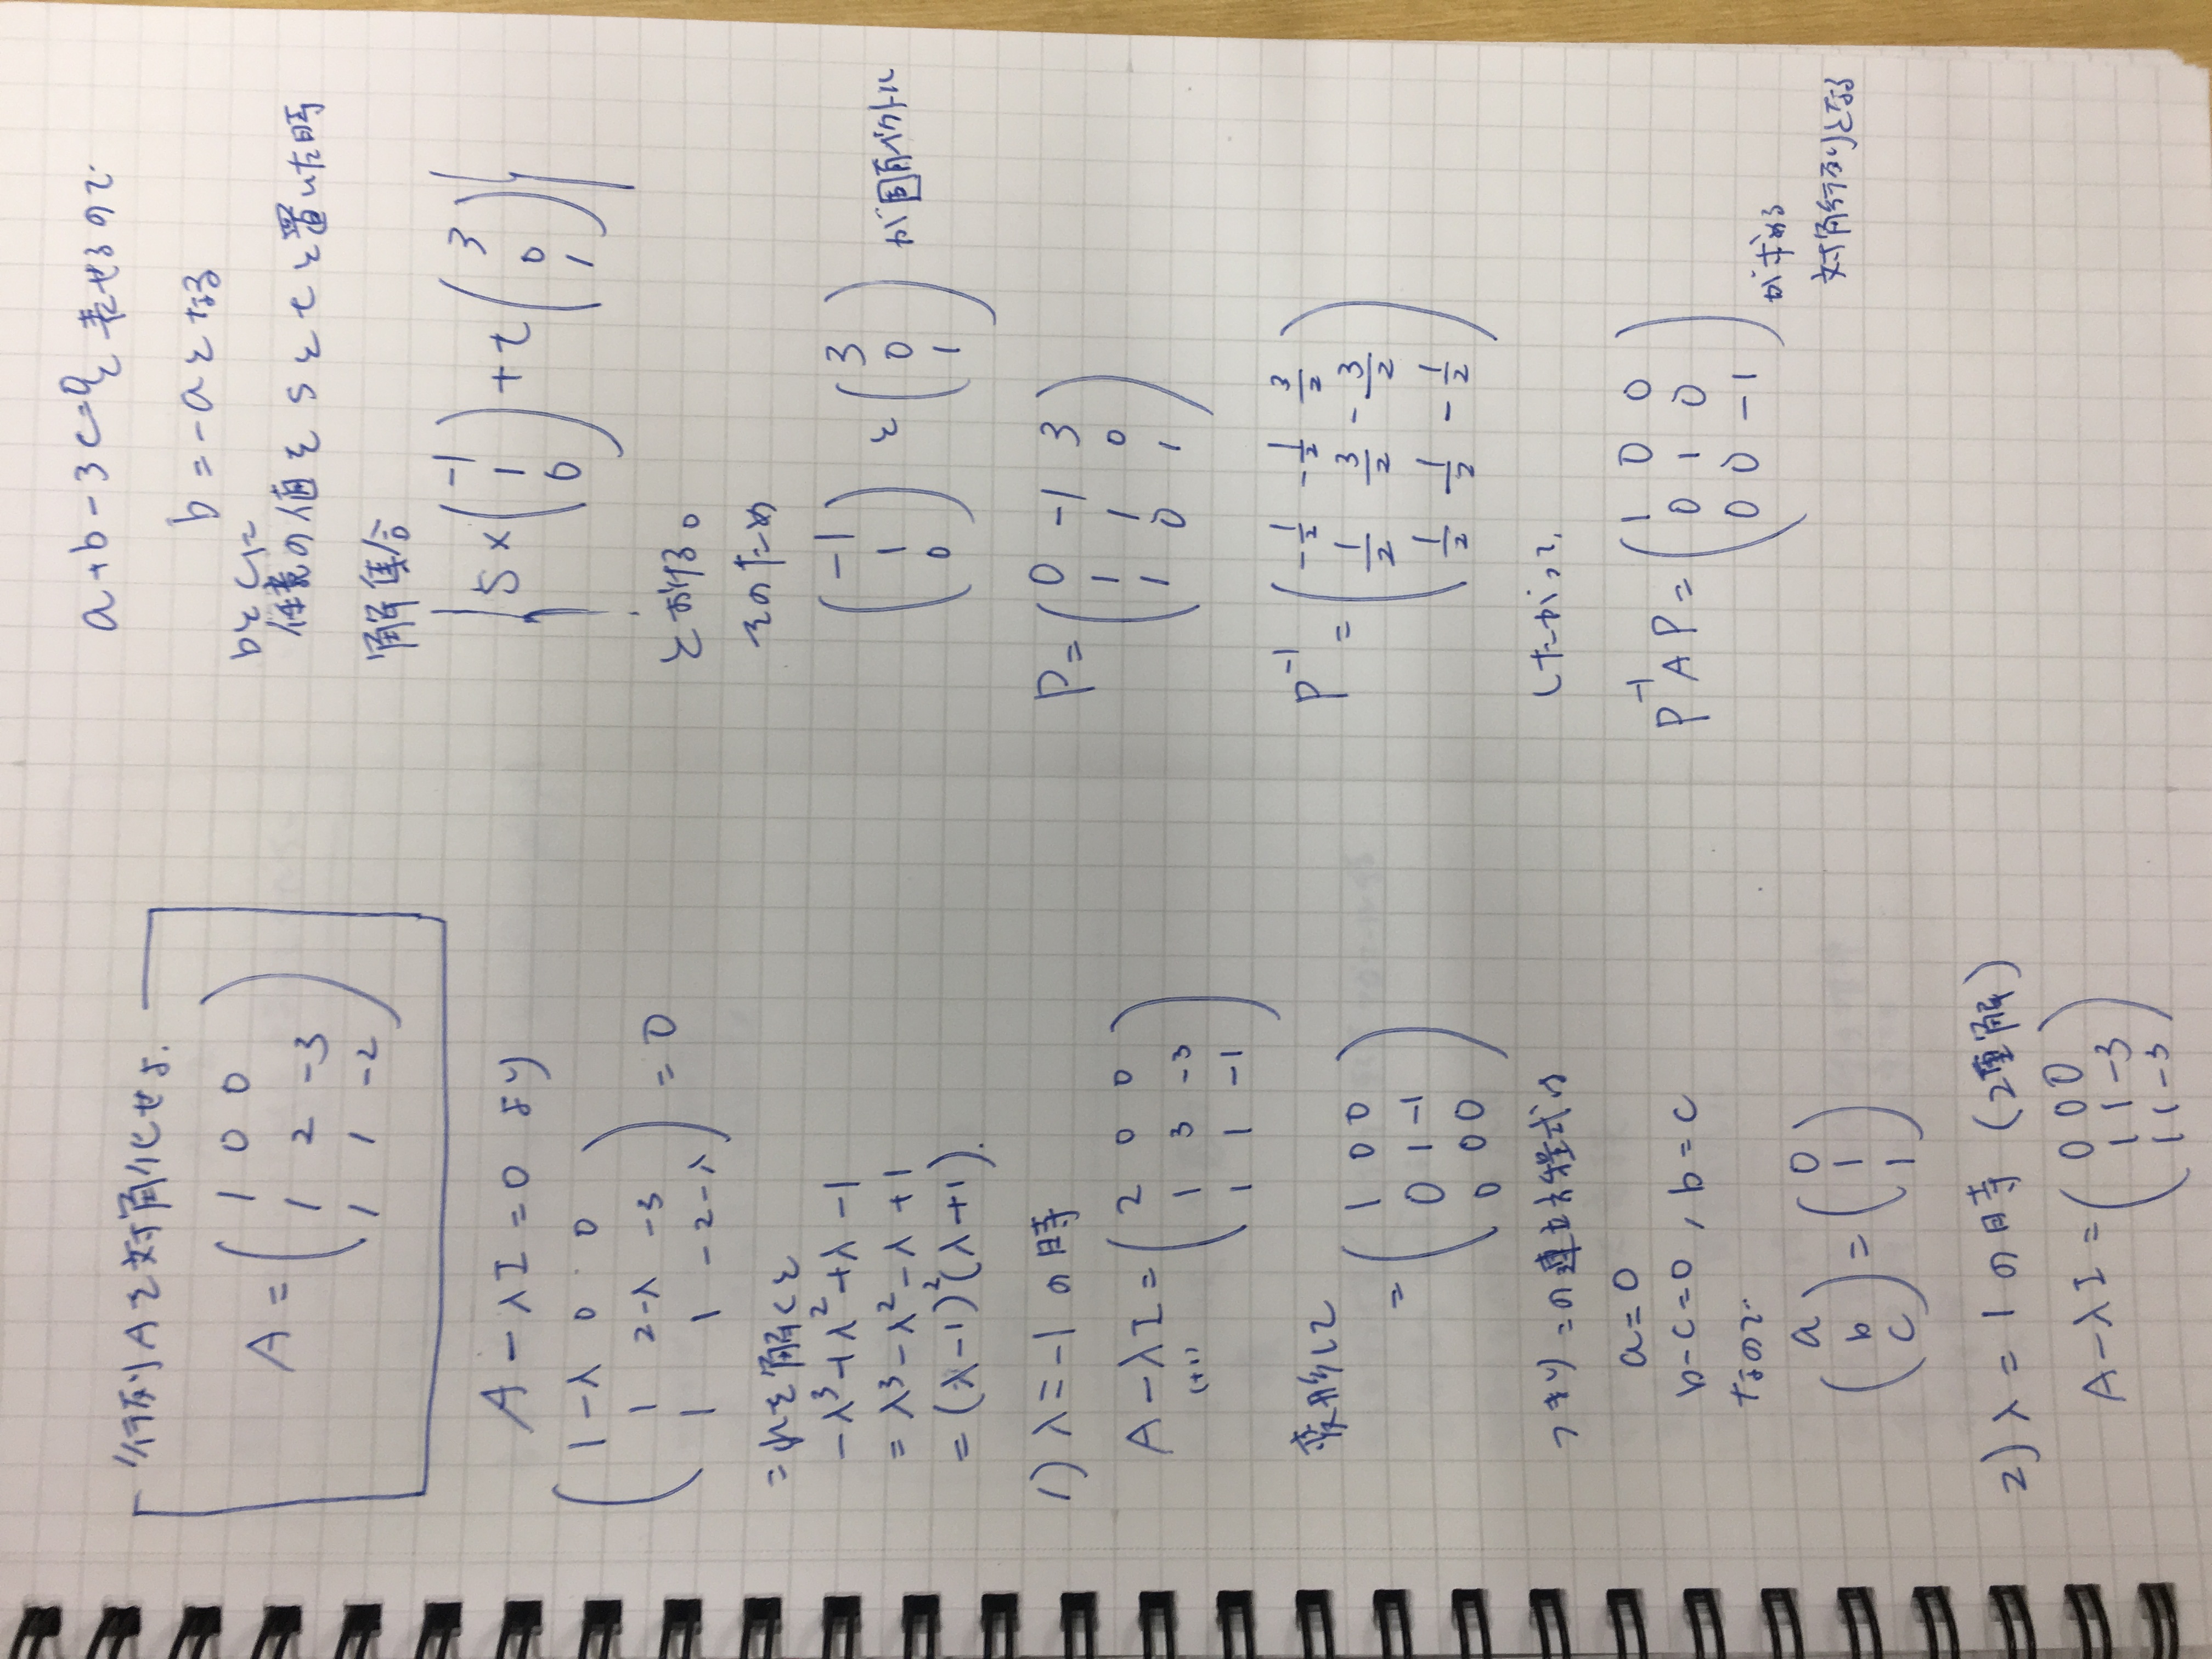 行列Aを対角化せよ.
A = ( 1 0 0
1 2 -3
1 1 -2 )
A - λI = 0 より
( 1-λ 0 0
1 2-λ -3
1 1 -2-λ ) = 0
これを解くと
-λ³+λ²+λ-1
= λ³-λ²-λ+1
= (λ-1)²(λ+1).
1) λ=-1 の時
A-λI = ( 2 0 0
(+1) 1 3 -3
1 1 -1 )
変形して
= ( 1 0 0
0 1 -1
0 0 0 )
つまりこの連立方程式は
a=0
b-c=0, b=c
なので
( a b c ) = ( 0 1 1 )
2) λ=1の時 (2重解)
A-λI = ( 0 0 0
1 1 -3
1 1 -3 )
a+b-3c=0と表せるので
b=-aとなる
bとcに
任意の値をsとtと置いた時
解集合
{ s× ( -1 1 0 ) + t ( 3 0 1 ) }
とおける。
そのため
( -1 1 0 ) と ( 3 0 1 ) が固有ベクトル
P= ( 0 -1 3
1 1 0
1 0 1 )
P⁻¹ = ( -1/2 -1/2 3/2
1/2 3/2 -3/2
1/2 1/2 -1/2 )
したがって,
P⁻¹AP= ( 1 0 0
0 1 0
0 0 -1 )
が求める
対角行列となる